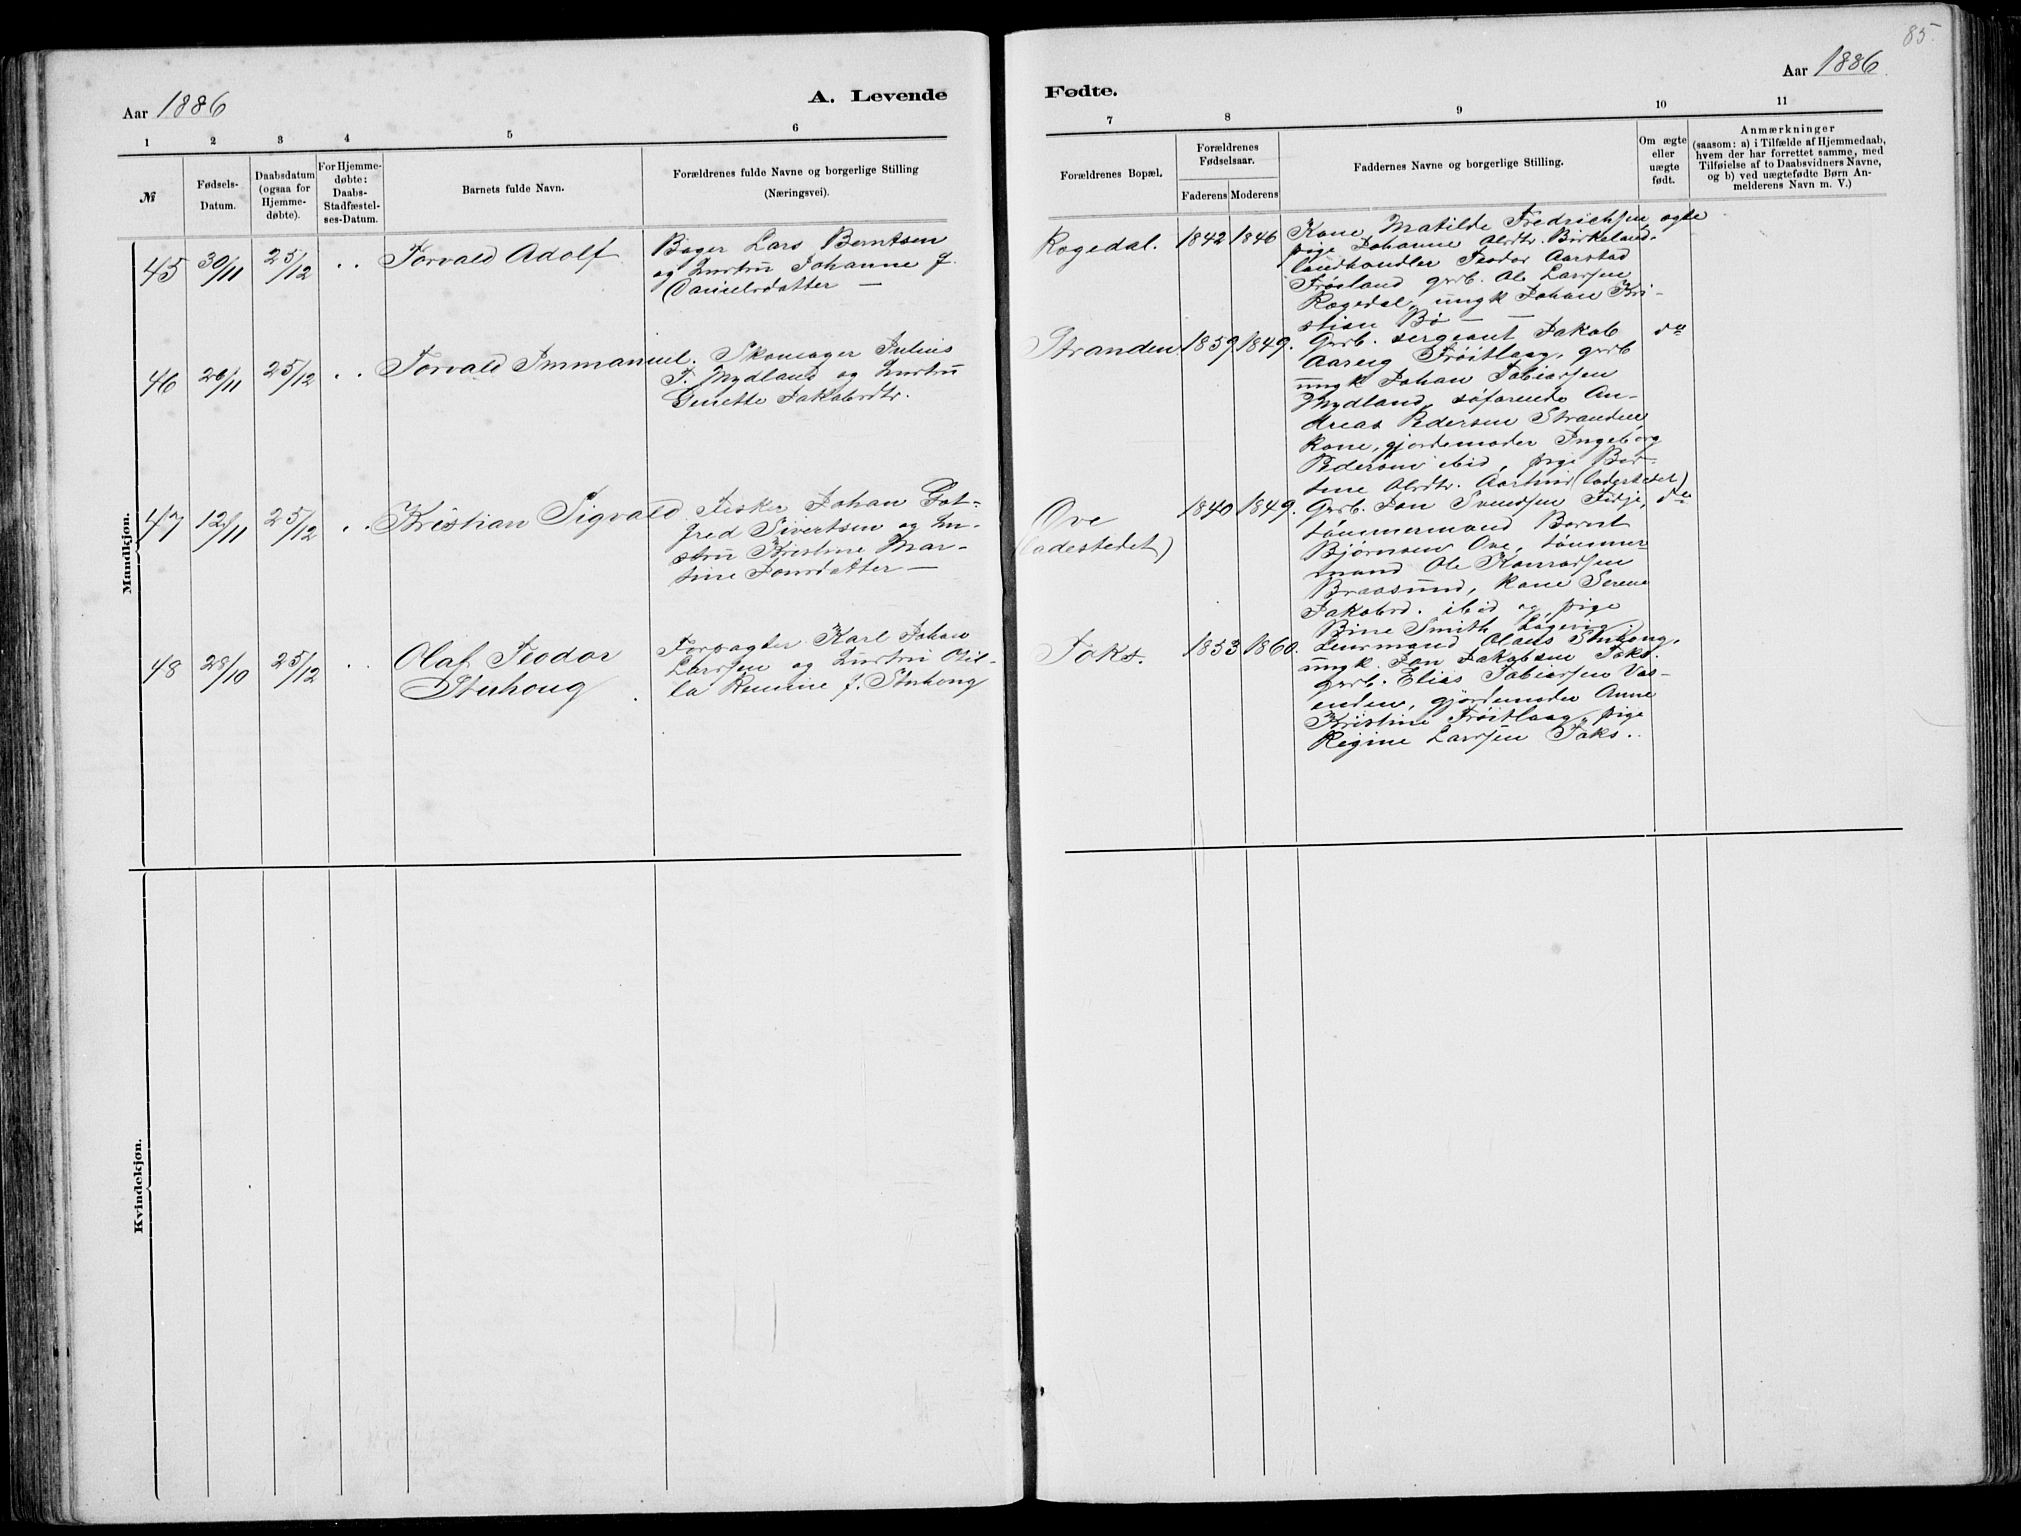 85.
Aar 1886
A. Levende
Fødte.
Aar 1886.
1 2 3 4 5 6
7 8 9 10 11
№
Fødsels-
Datum.
Daabsdatum
(ogsaa for
Hjemme-
døbte).
For Hjemme-
døbte:
Daabs-
Stadfæstel-
ses-Datum.
Barnets fulde Navn.
Forældrenes fulde Navne og borgerlige Stilling
(Næringsvei).
Forældrenes Bopæl.
Forældrenes
Fødselsaar.
Faderens Moderens
Faddernes Navne og borgerlige Stilling.
Om ægte
eller
uægte
født.
Anmærkninger
(saasom: a) i Tilfælde af Hjemmedaab,
hvem der har forrettet samme, med
Tilføielse af to Daabsvidners Navne,
og b) ved uægtefødte Børn An-
melderens Navn m. V.)
Mandkjøn.
45 30/11 25/12 . . Torvald Adolf
Bager Lars Berntsen
og hustru Johanne f.
Danielsdatter —
Rogedal. 1842 1846
Kone Matilde Fredrichsen, ægte
pige Johanne Alrdtr. Birkeland,
landhandler Teodor Aarstad
Frøsland gvrb. Ole Larssen
Rogedal, ungk Johan Kri-
stian Bø —
46 26/11 25/12 . . Torvald Immanuel.
Skomager Julius
T. Mydland og hustru
Genette Jakobsdtr.
Stranden. 1859. 1849.
Gvrb. sergeant Jakob do
Aareig Trøitlaag, gvrb
ungk Johan Tobiassen
Mydland, søfarende An-
dreas Pedersen Stranden,
kone, gjordemoder Ingeborg
Pedersen ibid, pige Ber-
tine Alrdtr. Aarstad (ladestedet)
47 12/11 25/12 . . Kristian Sigvald
Fisker Johan Got-
fred Sivertsen og hu-
stru Kristine Mar-
tine Jonsdatter —
Ove
(ladestedet)
1840 1849.
Gvrb. Jon Svendsen Fidje, do
tømmermand Bernt
Bjørnsen Ove, tømmer-
mand Ole Konradsen
Braasund, kone Serene
Jakobsd. ibid og pige
Bine Smith Løgevig.
48 28/10 25/12 . . Olaf Teodor
Stuhoug
Forpagter Karl Johan
Larssen og hustru Otil-
la Rumine f. Stuhoug
Foks. 1853 1860.
Lensmand Olaus Stuhoug,
ungk. Jon Jakobsen Foks.
gvrb. Elias Tobiassen Vas-
enden, gjordemoder Anne
Kristine Trøitlaag, pige
Regine Larssen Foks..
Kvindekjøn.